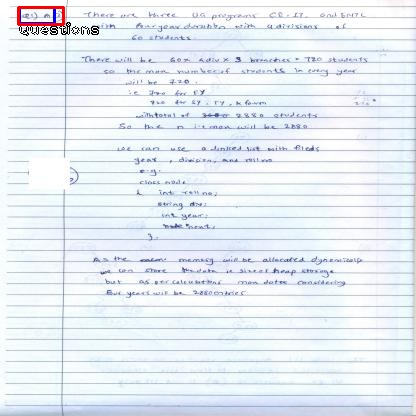 Q1) A)
Questions
There are three UG programs CE, IT, and ENTC
with Four year duration with 4 divisions of
60 students
There will be 60 x 4 div x 3 branches = 720 students
so the max number of students in every year
will be 720.
i.e 720 for FY
720 for SY, TY,
with total of 2880 students
So the n i.e max will be 2880
we can use a linked list with fileds
year, division, and roll no
e.g.
class node
{ int roll no;
string div;
int year;
node *next;
};
As the memory will be allocated dynamically
we can store the data ie size of heap storage
but as per calculations max dates considering
Four years will be 2880 entries